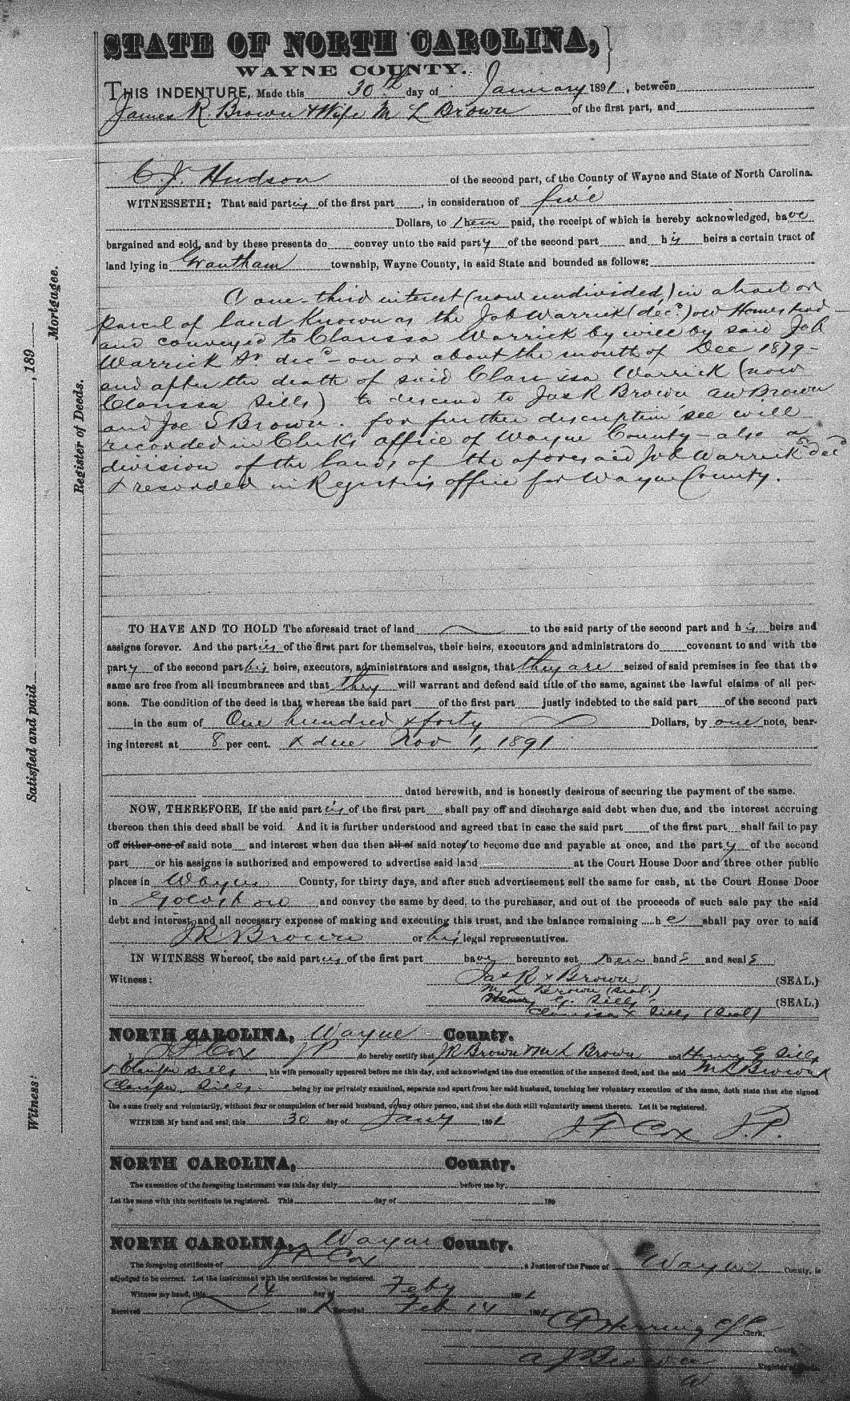 STATE OF NORTH CAROLINA,
WAYNE COUNTY.
THIS INDENTURE, Made this 30th day of January 1891, between
James R. Brown & Wife M L Brown of the first part, and
C. J. Hudson of the second part, of the County of Wayne and State of North Carolina.
WITNESSETH: That said parties of the first part, in consideration of five
Dollars, to them paid, the receipt of which is hereby acknowledged, have
bargained and sold, and by these presents do convey unto the said party of the second part and his heirs a certain tract of
land lying in Grantham township, Wayne County, in said State and bounded as follows:
A one-third interest (now undivided,) in a tract or
parcel of land known as the Job Warrick (decd) old Homestead
and conveyed to Clarissa Warrick by will by said Job
Warrick Sr decd - on or about the month of Dec 1879-
and after the death of said Clarissa Warrick (now
Clarissa Sills) to descend to Jas R Brown AW Brown
and Joe S Brown. for further description see will
recorded in Clerks office of Wayne County - also a
division of the lands of the aforesaid Job Warrick Sr decd
& recorded in Registers office for Wayne County.
TO HAVE AND TO HOLD The aforesaid tract of land to the said party of the second part and his heirs and
assigns forever. And the parties of the first part for themselves, their heirs, executors and administrators do covenant to and with the
party of the second part his heirs, executors, administrators and assigns, that they are seized of said premises in fee that the
same are free from all incumbrances and that they will warrant and defend said title of the same, against the lawful claims of all per-
sons. The condition of the deed is that whereas the said part of the first part justly indebted to the said part of the second part
in the sum of One hundred & forty Dollars, by one note, bear-
ing interest at 8 per cent. & due Nov 1, 1891
dated herewith, and is honestly desirous of securing the payment of the same.
NOW, THEREFORE, If the said parties of the first part shall pay off and discharge said debt when due, and the interest accruing
thereon then this deed shall be void. And it is further understood and agreed that in case the said part of the first part shall fail to pay
off either one of said note and interest when due then all of said notes to become due and payable at once, and the party of the second
part or his assigns is authorized and empowered to advertise said land at the Court House Door and three other public
places in Wayne County, for thirty days, and after such advertisement sell the same for cash, at the Court House Door
in Goldsboro and convey the same by deed, to the purchaser, and out of the proceeds of such sale pay the said
debt and interest, and all necessary expense of making and executing this trust, and the balance remaining he shall pay over to said
JR Brown or his legal representatives.
IN WITNESS Whereof, the said parties of the first part have hereunto set their hands and seals
Witness: Jas R x Brown (SEAL.)
M L Brown (Seal.)
Henry G. Sills (SEAL.)
Clarissa x Sills (Seal)
NORTH CAROLINA, Wayne County.
I, J F Cox JP do hereby certify that JR Brown & M L Brown and Henry G Sills
& Clarissa Sills his wife personally appeared before me this day, and acknowledged the due execution of the annexed deed, and the said M L Brown &
Clarissa Sills being by me privately examined, separate and apart from her said husband, touching her voluntary execution of the same, doth state that she signed
the same freely and voluntarily, without fear or compulsion of her said husband, or any other person, and that she doth still voluntarily assent thereto. Let it be registered.
WITNESS My hand and seal, this 30 day of Jany 1891
J F Cox J.P.
NORTH CAROLINA, County.
The execution of the foregoing instrument was this day duly before me by
Let the same with this certificate be registered. This day of 189
NORTH CAROLINA, Wayne County.
The foregoing certificate of J F Cox a Justice of the Peace of Wayne County, is
adjudged to be correct. Let the instrument with the certificates be registered.
Witness my hand, this 14 day of Feby 1891
Received 189 Recorded Feb 14 1891
Herring Clerk,
Court
A J Brown Register of Deeds.
Witness:
Satisfied and paid , 189
Register of Deeds.
Mortgagee.